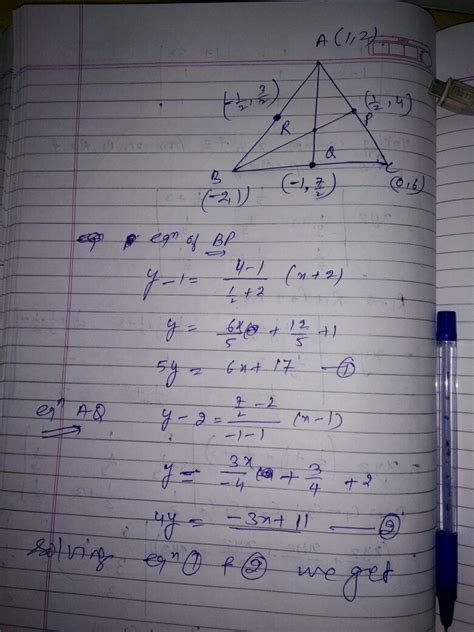 A (1,2)
(-1/2, 3/2)
(1/2, 4)
R
P
Q
B
(-2,1)
(-1, 7/2)
C
(0,6)
eqⁿ of BP
y-1 = (4-1)/(1/2+2) (x+2)
y = 6x/5 + 12/5 + 1
5y = 6x+17 — ①
eqⁿ AQ
y-2 = (7/2-2)/(-1-1) (x-1)
y = 3x/-4 + 3/4 + 2
4y = -3x+11 — ②
Solving eqⁿ ① & ② we get